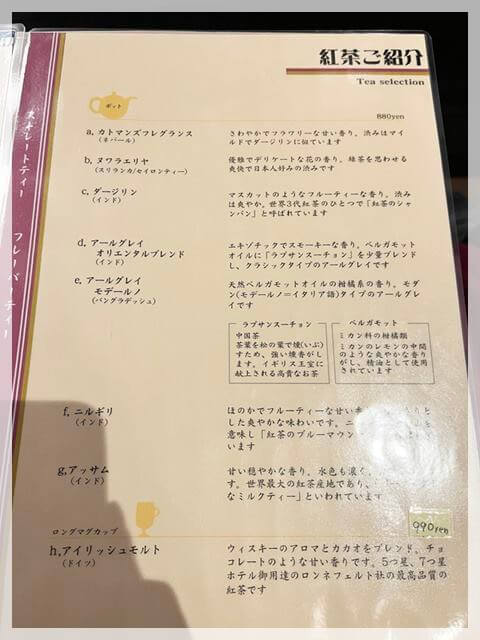 紅茶ご紹介
Tea selection
ストレートティー
フレーバーティー
ポット
880yen
a. カトマンズフレグランス
(ネパール)
さわやかでフラワリーな甘い香り。渋みはマイ
ルドでダージリンに似ています
b. ヌワラエリヤ
(スリランカ/セイロンティー)
優雅でデリケートな花の香り。緑茶を思わせる
爽快で日本人好みの渋みです
c. ダージリン
(インド)
マスカットのようなフルーティーな香り。渋み
は爽やか。世界3代紅茶のひとつで「紅茶のシャ
ンパン」と呼ばれています
d. アールグレイ
オリエンタルブレンド
(インド)
エキゾチックでスモーキーな香り。ベルガモット
オイルに「ラプサンスーチョン」を少量ブレンド
し、クラシックタイプのアールグレイです
e. アールグレイ
モデールノ
(バングラデッシュ)
天然ベルガモットオイルの柑橘系の香り。モダ
ン(モデールノ=イタリア語)タイプのアールグレ
イです
ラプサンスーチョン
中国茶
茶葉を松の葉で燻(いぶ)
すため、強い燻香がしま
す。イギリス王室に
献上される高貴なお茶
ベルガモット
ミカン科の柑橘類
ミカンのレモンの中間
のような爽やかな香り
がし、精油として使用
されています
f. ニルギリ
(インド)
ほのかでフルーティーな甘い香
した爽やかな味わいです。
意味し「紅茶のブルーマウン
います
g. アッサム
(インド)
甘い穏やかな香り。水色も濃く、
す。世界最大の紅茶産地であり、
なミルクティー」といわれています
990yen
ロングマグカップ
h. アイリッシュモルト
(ドイツ)
ウィスキーのアロマとカカオをブレンド。チョ
コレートのような甘い香りです。5つ星、7つ星
ホテル御用達のロンネフェルト社の最高品質の
紅茶です